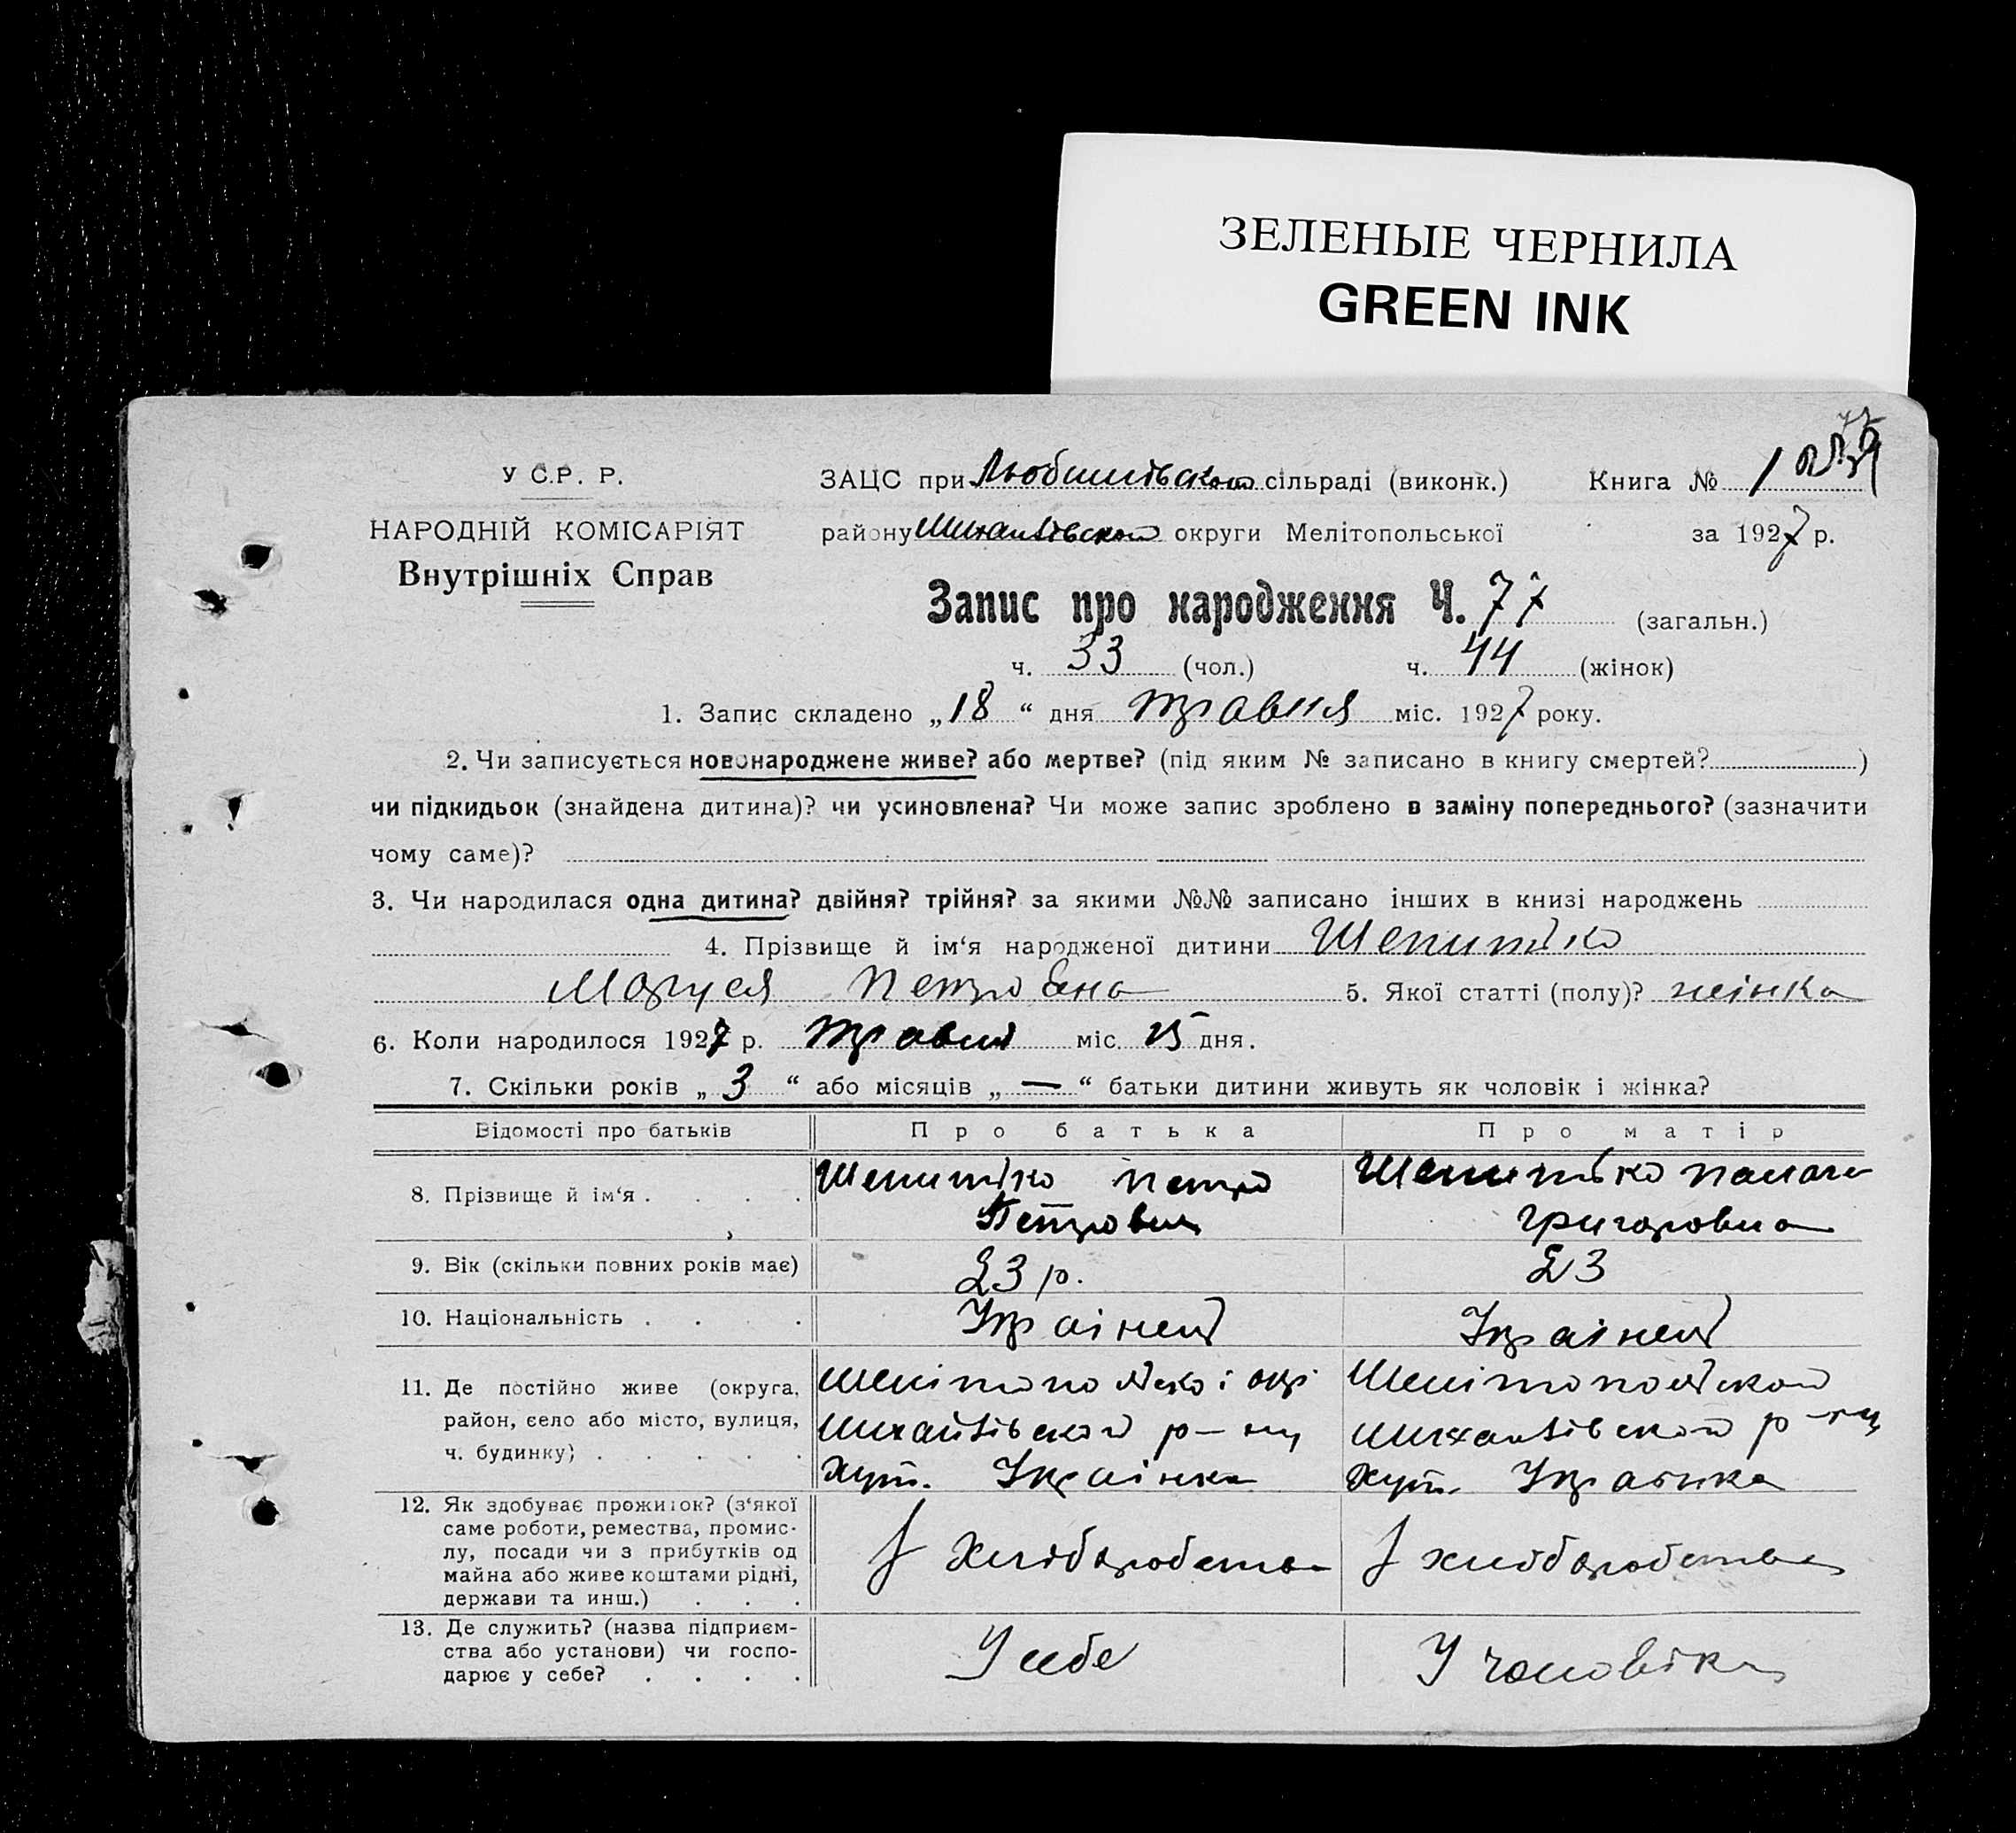 ЗЕЛЕНЫЕ ЧЕРНИЛА
GREEN INK
У С.Р. Р.
НАРОДНІЙ КОМІСАРІЯТ
Внутрішніх Справ
ЗАЦС при Любимівської сільраді (виконк.) Книга № 1
району Михайлівської округи Мелітопольської за 1927 р.
Запис про народження Ч. 77 (загальн.)
ч. 33 (чол.) ч. 44 (жінок)
1. Запис складено „18“ дня травня міс. 1927 року.
2. Чи записується новонароджене живе? або мертве? (під яким № записано в книгу смертей? )
чи підкидьок (знайдена дитина)? чи усиновлена? Чи може запис зроблено в заміну попереднього? (зазначити
чому саме)?
3. Чи народилася одна дитина? двійня? трійня? за якими №№ записано інших в книзі народжень
4. Прізвище й ім‘я народженої дитини Шепитько
Маруся Петровна 5. Якої статті (полу)? жінка
6. Коли народилося 1927 р. травня міс. 15 дня.
7. Скільки років „3“ або місяців „—“ батьки дитини живуть як чоловік і жінка?
Відомості про батьків Про батька Про матір
8. Прізвище й ім‘я . . . . Шепитько Петро Петрович Шепитько Григоровна
9. Вік (скільки повних років має) 23 р. 23
10. Національність . . . . Украінець Украінець
11. Де постійно живе (округа, Мелітопольскоі окр. Мелітопольскоі
район, село або місто, вулиця, Михайлівскоі р-ну Михайлівскоі р-ну
ч. будинку) . . . . . Хут. Украінка Хут. Украінка
12. Як здобуває прожиток? (з‘якої
саме роботи, ремества, промис-
лу, посади чи з прибутків од
майна або живе коштами рідні,
держави та инш.) . . . Хліборобство хліборобство
13. Де служить? (назва підприєм-
ства або установи) чи госпо-
дарює у себе? . . . . У себе У чоловіка